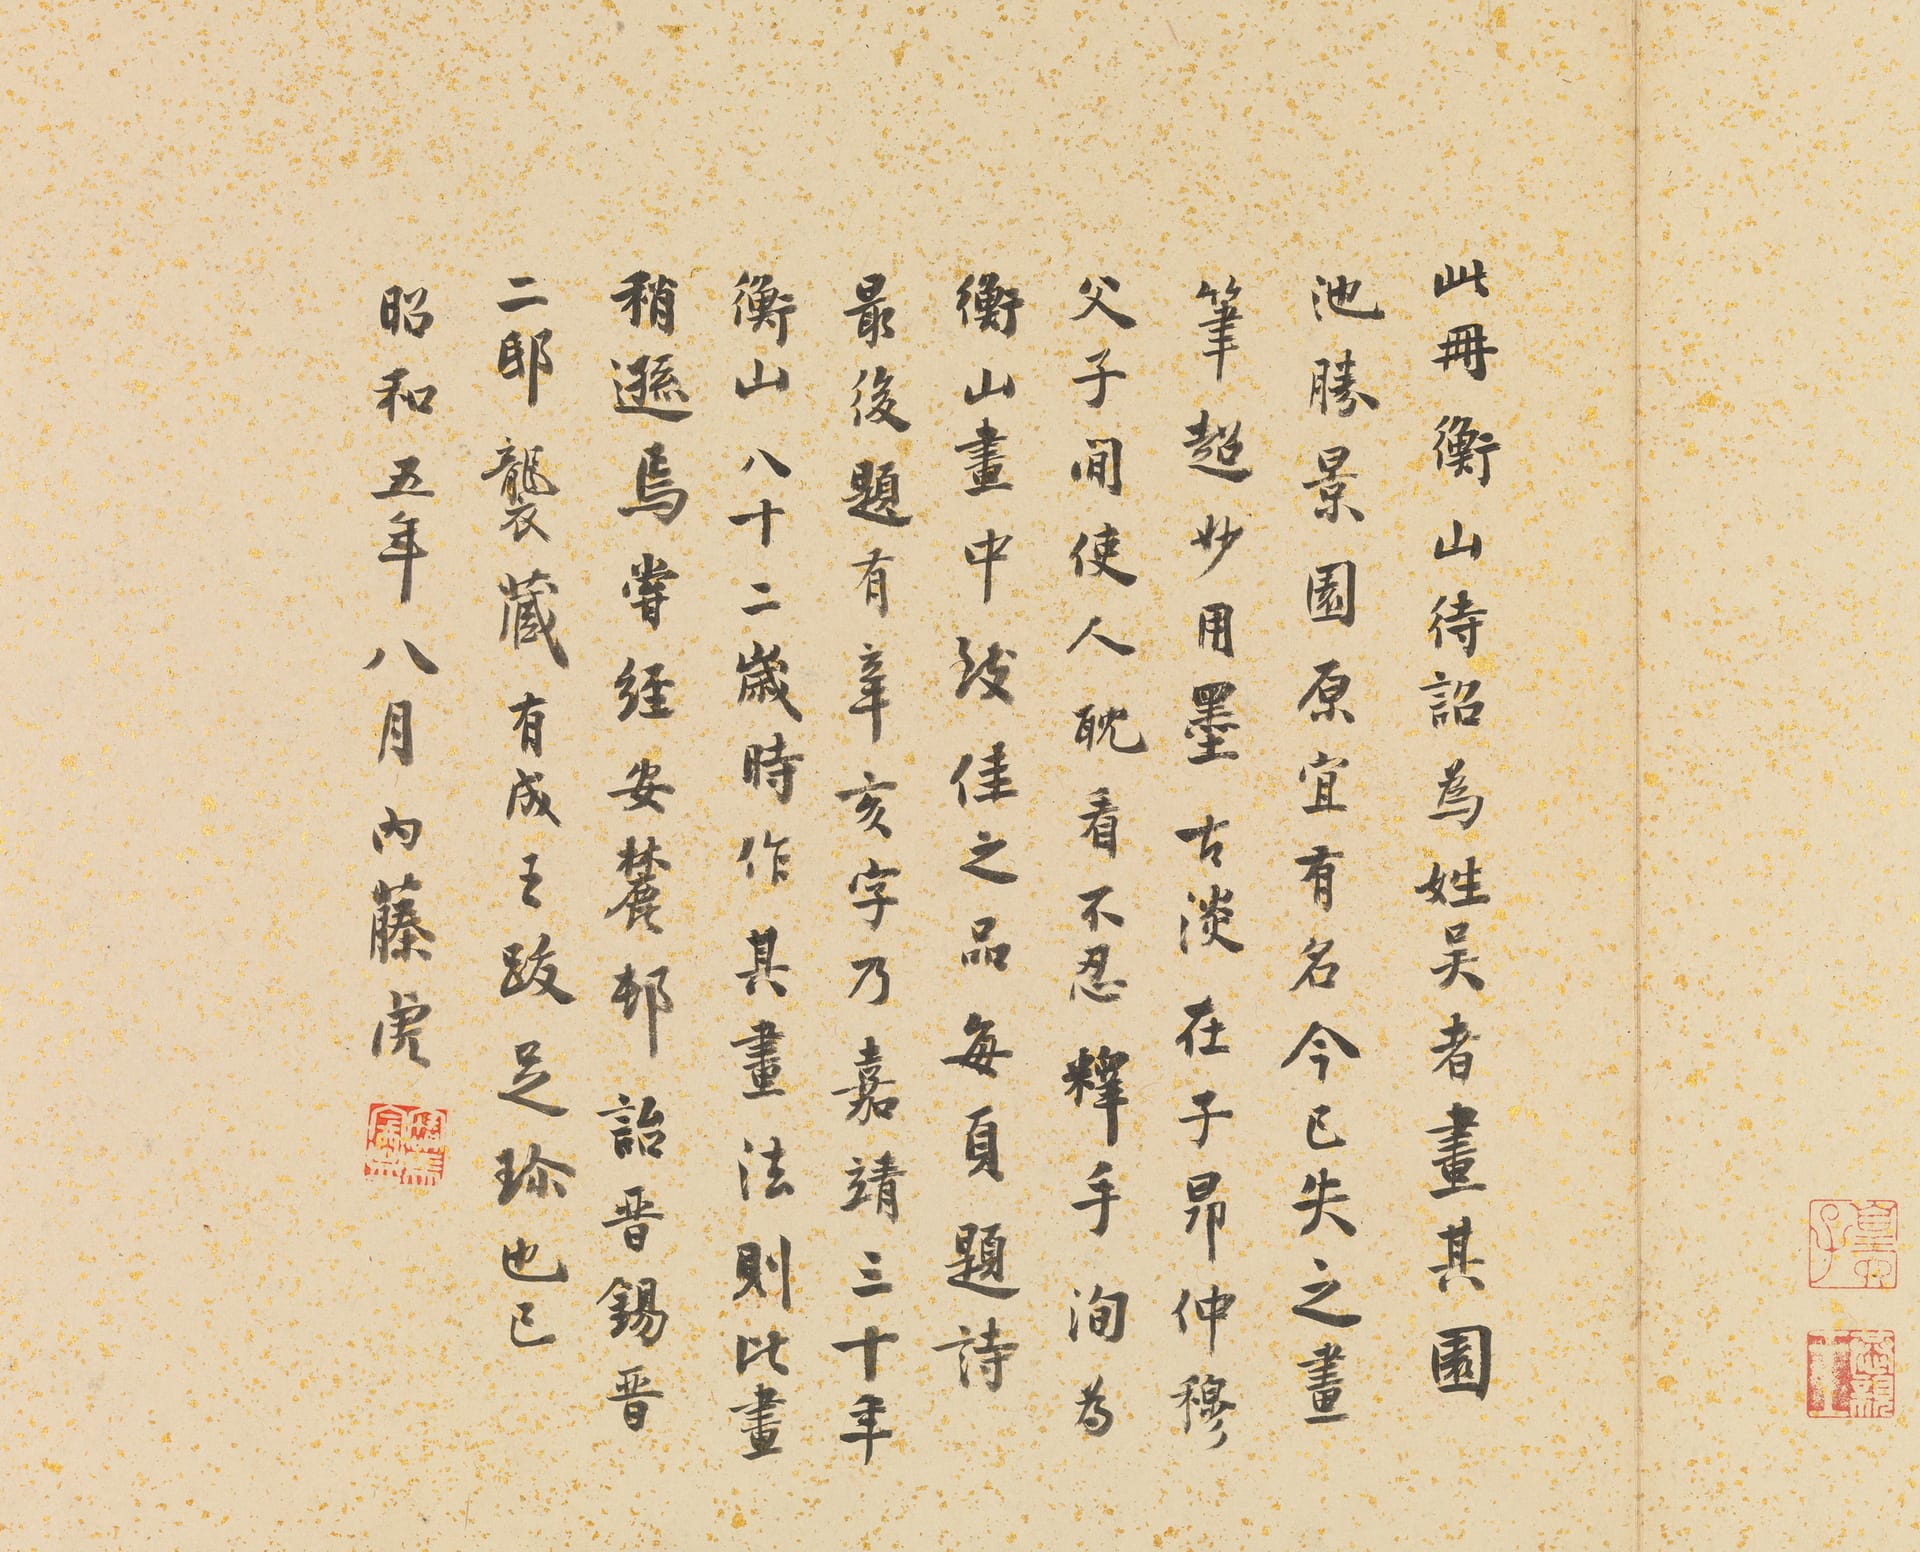 此冊衡山待詔為姓吴者畫其園
池勝景園原宜有名今已失之畫
筆超妙用墨古淡在子昂仲穆
父子間使人耽看不忍釋手洵为
衡山畫中致佳之品每頁題詩
最後題有辛亥字乃嘉靖三十年
衡山八十二歲時作其畫法則比畫
稍遜焉嘗経安麓邨詒晋錫晋
二邸襲藏有成王跋足珎也已
昭和五年八月内藤虎